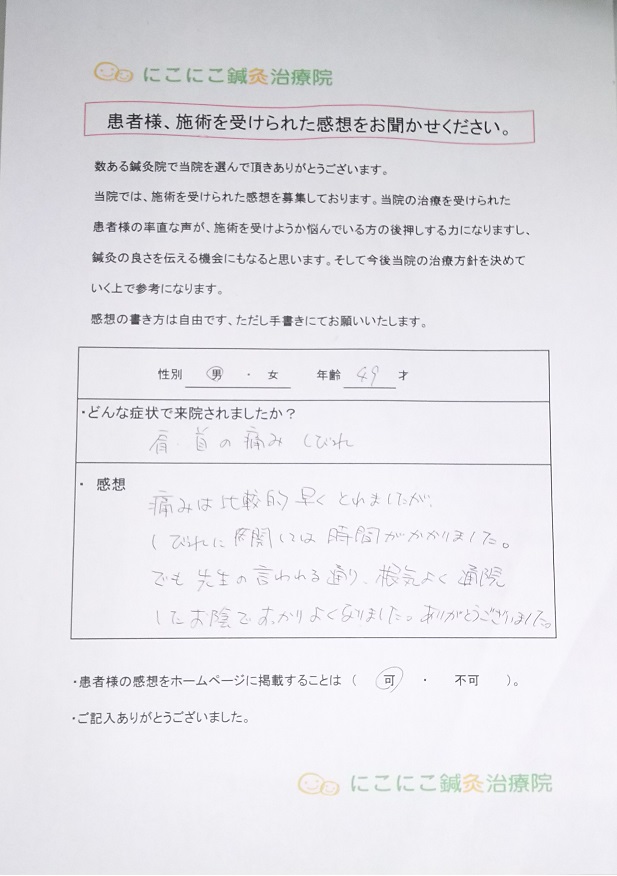 にこにこ鍼灸治療院
患者様、施術を受けられた感想をお聞かせください。
数ある鍼灸院で当院を選んで頂きありがとうございます。
当院では、施術を受けられた感想を募集しております。当院の治療を受けられた
患者様の率直な声が、施術を受けようか悩んでいる方の後押しする力になりますし、
鍼灸の良さを伝える機会にもなると思います。そして今後当院の治療方針を決めて
いく上で参考になります。
感想の書き方は自由です、ただし手書きにてお願いいたします。
性別 男 ・ 女 年齢 49 才
・どんな症状で来院されましたか？
肩・首の痛み しびれ
・ 感想
痛みは比較的早くとれましたが、
しびれに関しては時間がかかりました。
でも先生の言われる通り、根気よく通院
したお陰ですっかりよくなりました。ありがとうございました。
・患者様の感想をホームページに掲載することは（ 可 ・ 不可 ）。
・ご記入ありがとうございました。
にこにこ鍼灸治療院